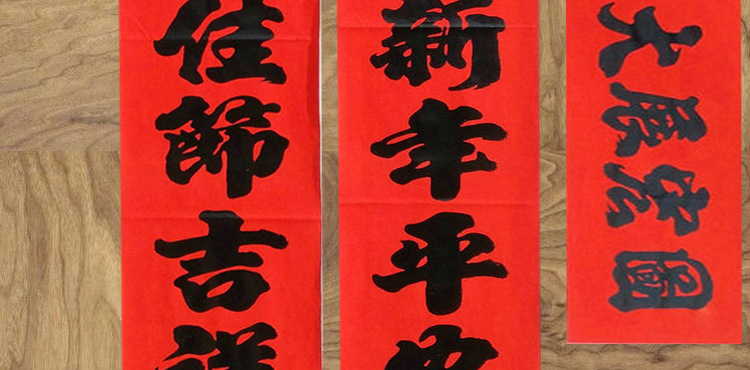 大展宏圖
新年平安
佳節吉祥